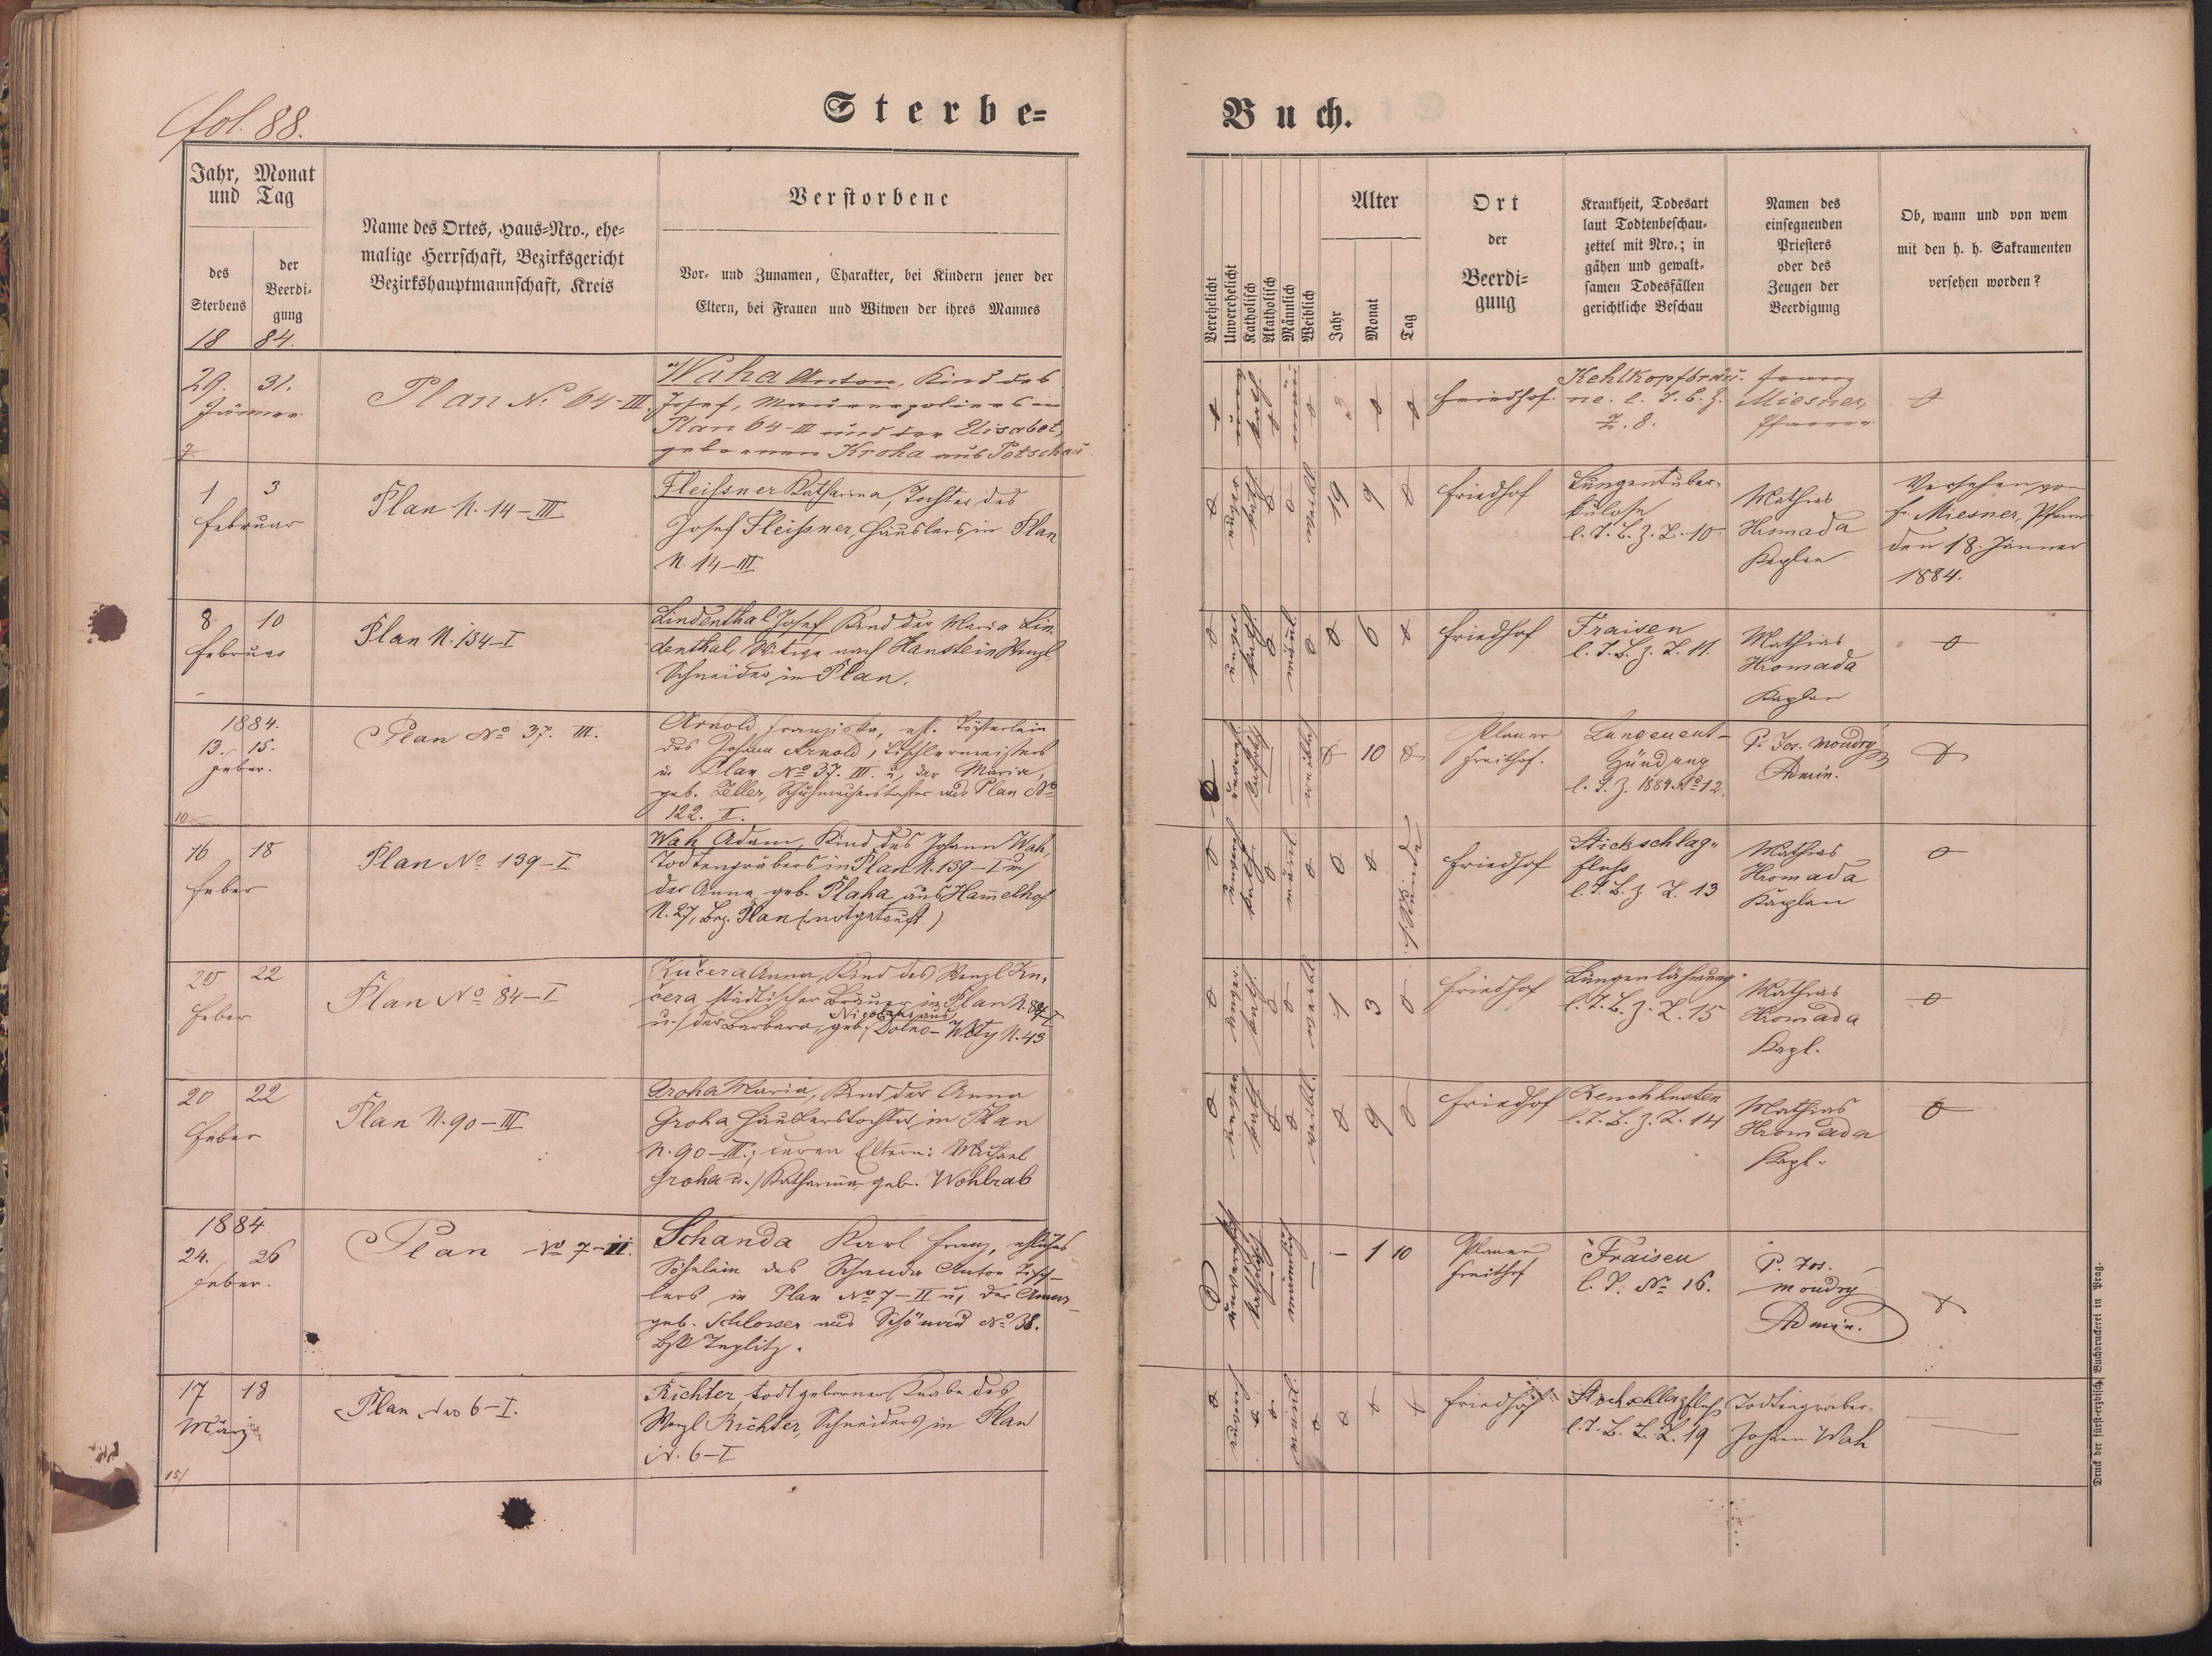 fol. 88.
Sterbe=
Buch.
Jahr, Monat
und Tag
des
Sterbens
der
Beerdi-
gung
18 84.
Name des Ortes, Haus=Nro., ehe=
malige Herrschaft, Bezirksgericht
Bezirkshauptmannschaft, Kreis
Verstorbene
Vor- und Zunamen, Charakter, bei Kindern jener der
Eltern, bei Frauen und Witwen der ihres Mannes
Verehelicht
Unverehelicht
Katholisch
Akatholisch
Männlich
Weiblich
Alter
Jahr
Monat
Tag
Ort
der
Beerdi-
gung
Krankheit, Todesart
laut Todtenbeschau-
zettel mit Nro.; in
gähen und gewalt-
samen Todesfällen
gerichtliche Beschau
Namen des
einsegnenden
Priesters
oder des
Zeugen der
Beerdigung
Ob, wann und von wem
mit den h. h. Sakramenten
versehen worden?
29. 31.
Jänner
Plan No. 64-III
Waha Anton, Kind des
Josef, Maurerpoliers in
Plan 64-III und der Elisabet,
gebornen Kroha aus Petschau
Friedhof.
Kehlkopfbräu-
ne. l. T. b. Z.
Z. 8.
Franz
Miesner,
Pfarrer
1 3
Februar
Plan N. 14-III
Fleißner Katharina, Tochter des
Josef Fleißner, Häuslers in Plan
N. 14-III
19 9 0
Friedhof
Lungentuber-
kulose
l. T. B. Z. Z. 10
Mathias
Hromada
Kaplan
Versehen von
Fr. Miesner, Pfarrer
den 18. Jänner
1884.
8. 10
Februar
Plan N. 134-I
Lindenthal Josef, Kind der Maria Lin-
denthal, Witwe nach Wenzl
Schneider in Plan.
0 6 0
Friedhof
Fraisen
l. T. B. Z. Z. 11.
Mathias
Hromada
Kaplan
1884.
13. 15.
Feber.
Plan No 37. III.
Arnold Franziska, ehl. Töchterlein
des Johann Arnold, Tischlermeisters
in Plan No 37. III. u. der Maria,
geb. Zeller, Schuhmacherstochter aus Plan No
122. II.
10
Planer
Freithof.
Lungenent-
zündung
l. T. Z. 1884 No 12.
P. Jos. Moudry
Admin.
16 18
Feber
Plan No 139-I
Wah Adam, Kind des Johann Wah,
Todtengräbers in Plan N. 139-I u.
der Anna geb. Plaha aus Ham̄elhof
N. 27, Bez. Plan (notgetauft)
Friedhof
Stickschlag-
fluß
l. T. B. Z. Z. 13
Mathias
Hromada
Kaplan
20 22
Feber
Plan No 84-I
Kučera Anna, Kind des Wenzl Ku-
čera städtischer Bräuer in Plan N. 84-I
u. der Barbara, geb. aus Dolno- N. 43
1 3 0
Friedhof
Lungenlähmung
l. T. B. Z. Z. 15
Mathias
Hromada
Kapl.
20 22
Feber
Plan N. 90-III
Groha Maria, Kind der Anna
Groha Häuslerstochter in Plan
N. 90-III; deren Eltern: Michael
Groha u. Katharina geb. Wohlrab
0 9 0
Friedhof
Keuchhusten
l. T. B. Z. Z. 14
Mathias
Hromada
Kapl.
1884
24. 26
Feber.
Plan No 7-II.
Schanda Karl Franz, ehliches
Söhnlein des Schanda Anton Tisch-
lers in Plan No 7-II u. der Anna
geb. Schlosser aus Schönau No 38.
Bzk Teplitz.
- 1 10
Planer
Freithof
Fraisen
l. T. No 16.
P. Jos.
Moudry
Admin.
17 18
März
Plan Nro 6-I.
Richter, todtgeborner Knabe des
Wenzl Richter, Schneiders in Plan
N. 6-I
Friedhof
Stickschlagfluß
l. T. B. Z. Z. 19
Todtengräber
Johann Wah
15/
Druck der fürst-erzbisch. Buchdruckerei in Prag.